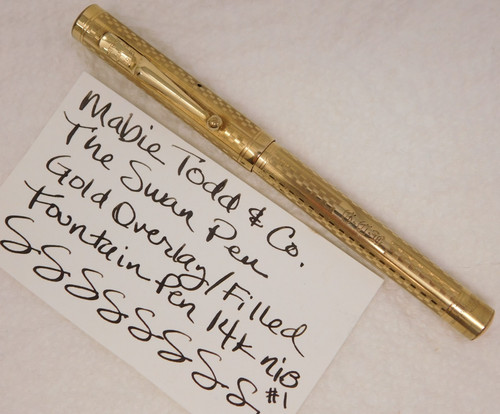 Mabie Todd & Co.
The Swan Pen
Gold Overlay/Filled
Fountain Pen 14k nib
SSSSSSSS #1